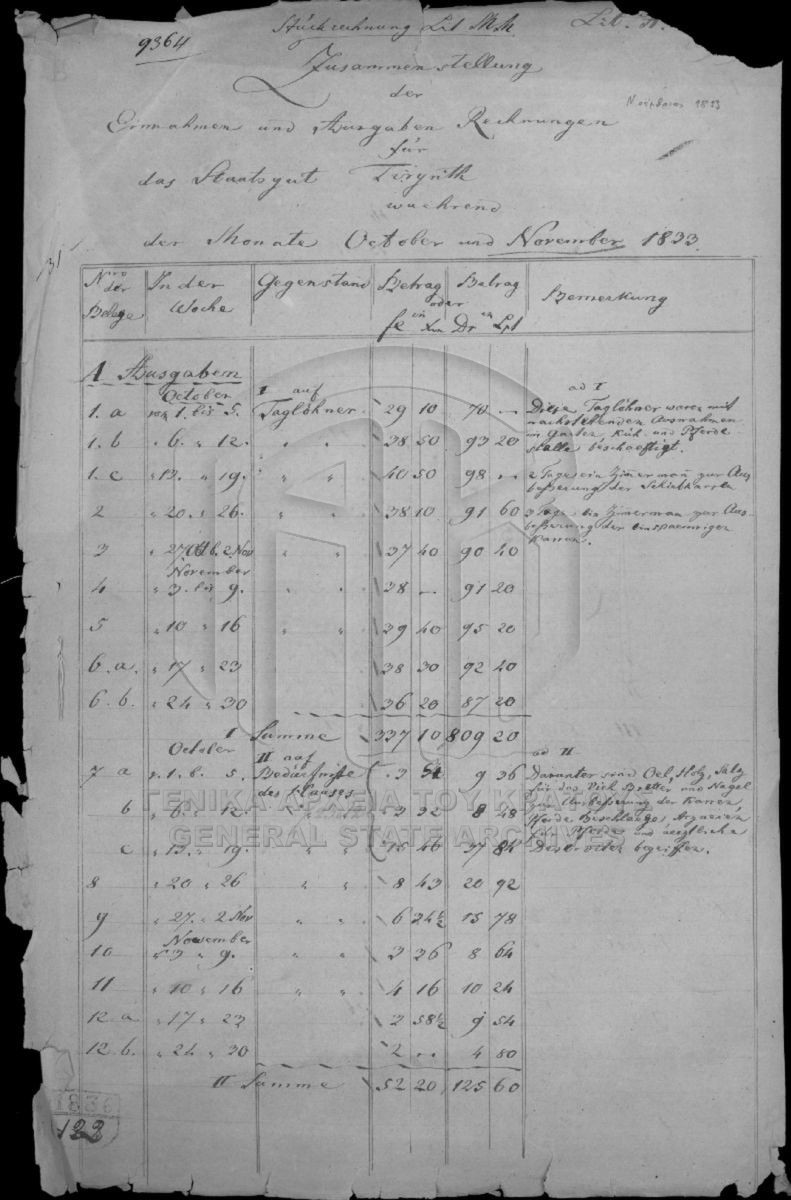 9364
Stückrechnung Lit. M.
Lit.
Zusammenstellung
der
Νοέμβριος 1833
Einnahmen und Ausgaben Rechnungen
für
das Staatsgut Tirynth
waehrend
der Monate October und November 1833.
Nro der Belege | In der Woche | Gegenstand | Betrag in fl Xr | oder | Betrag in Dr Lpt | Bemerkung
A Ausgaben
October I auf ad I
1. a von 1. bis 5. Taglöhner 29 10 70 --
Diese Taglöhner waren mit
nachstehenden Ausnahmen
im Garten, Küh und Pferde
stalle beschaeftigt.
1. b " 6. " 12. " " 38 50 93 20
1. c " 13. " 19. " " 40 50 98 --
2 Tage ein Zimerman zur Aus
beßerung der Schiebkarren
2 " 20. " 26. " " 38 10 91 60
3 Tage ein Zimerman zur Aus-
beßerung der einspaennigen
Karren.
3 " 27. Oct b. 2. Nov " " 37 40 90 40
November
4 " 3. bis 9. " " 38 -- 91 20
5 " 10 " 16 " " 39 40 95 20
6. a. " 17 " 23 38 30 92 40
6. b. " 24 " 30 36 20 87 20
I Summe 337 10 809 20
October II auf ad II
7 a v. 1. b. 5. Bedürfniße 3 54 9 36
des Hauses
Darunter sind Oel, Holz, Salz
für das Vieh Bretter und Nagel
zur Ausbeßerung der Karren,
Pferde Beschlaege, Arzneien
für Pferde und aerztliche
begriffen.
b " 6. " 12. " " 3 32 8 48
c " 13. " 19. " " 15 46 37 84
8 " 20 " 26 " " 8 43 20 92
9 " 27. " 2 Nov " " 6 34½ 15 78
November
10 " 3 " 9. " " 3 36 8 64
11 " 10 " 16 " " 4 16 10 24
12 a " 17 " 23 3 58½ 9 54
12. b. " 24 " 30 2 -- 4 80
II Summe 52 20 125 60
ΓΕΝΙΚΑ ΑΡΧΕΙΑ ΤΟΥ ΚΡΑΤΟΥΣ
GENERAL STATE ARCHIVES
1836
122